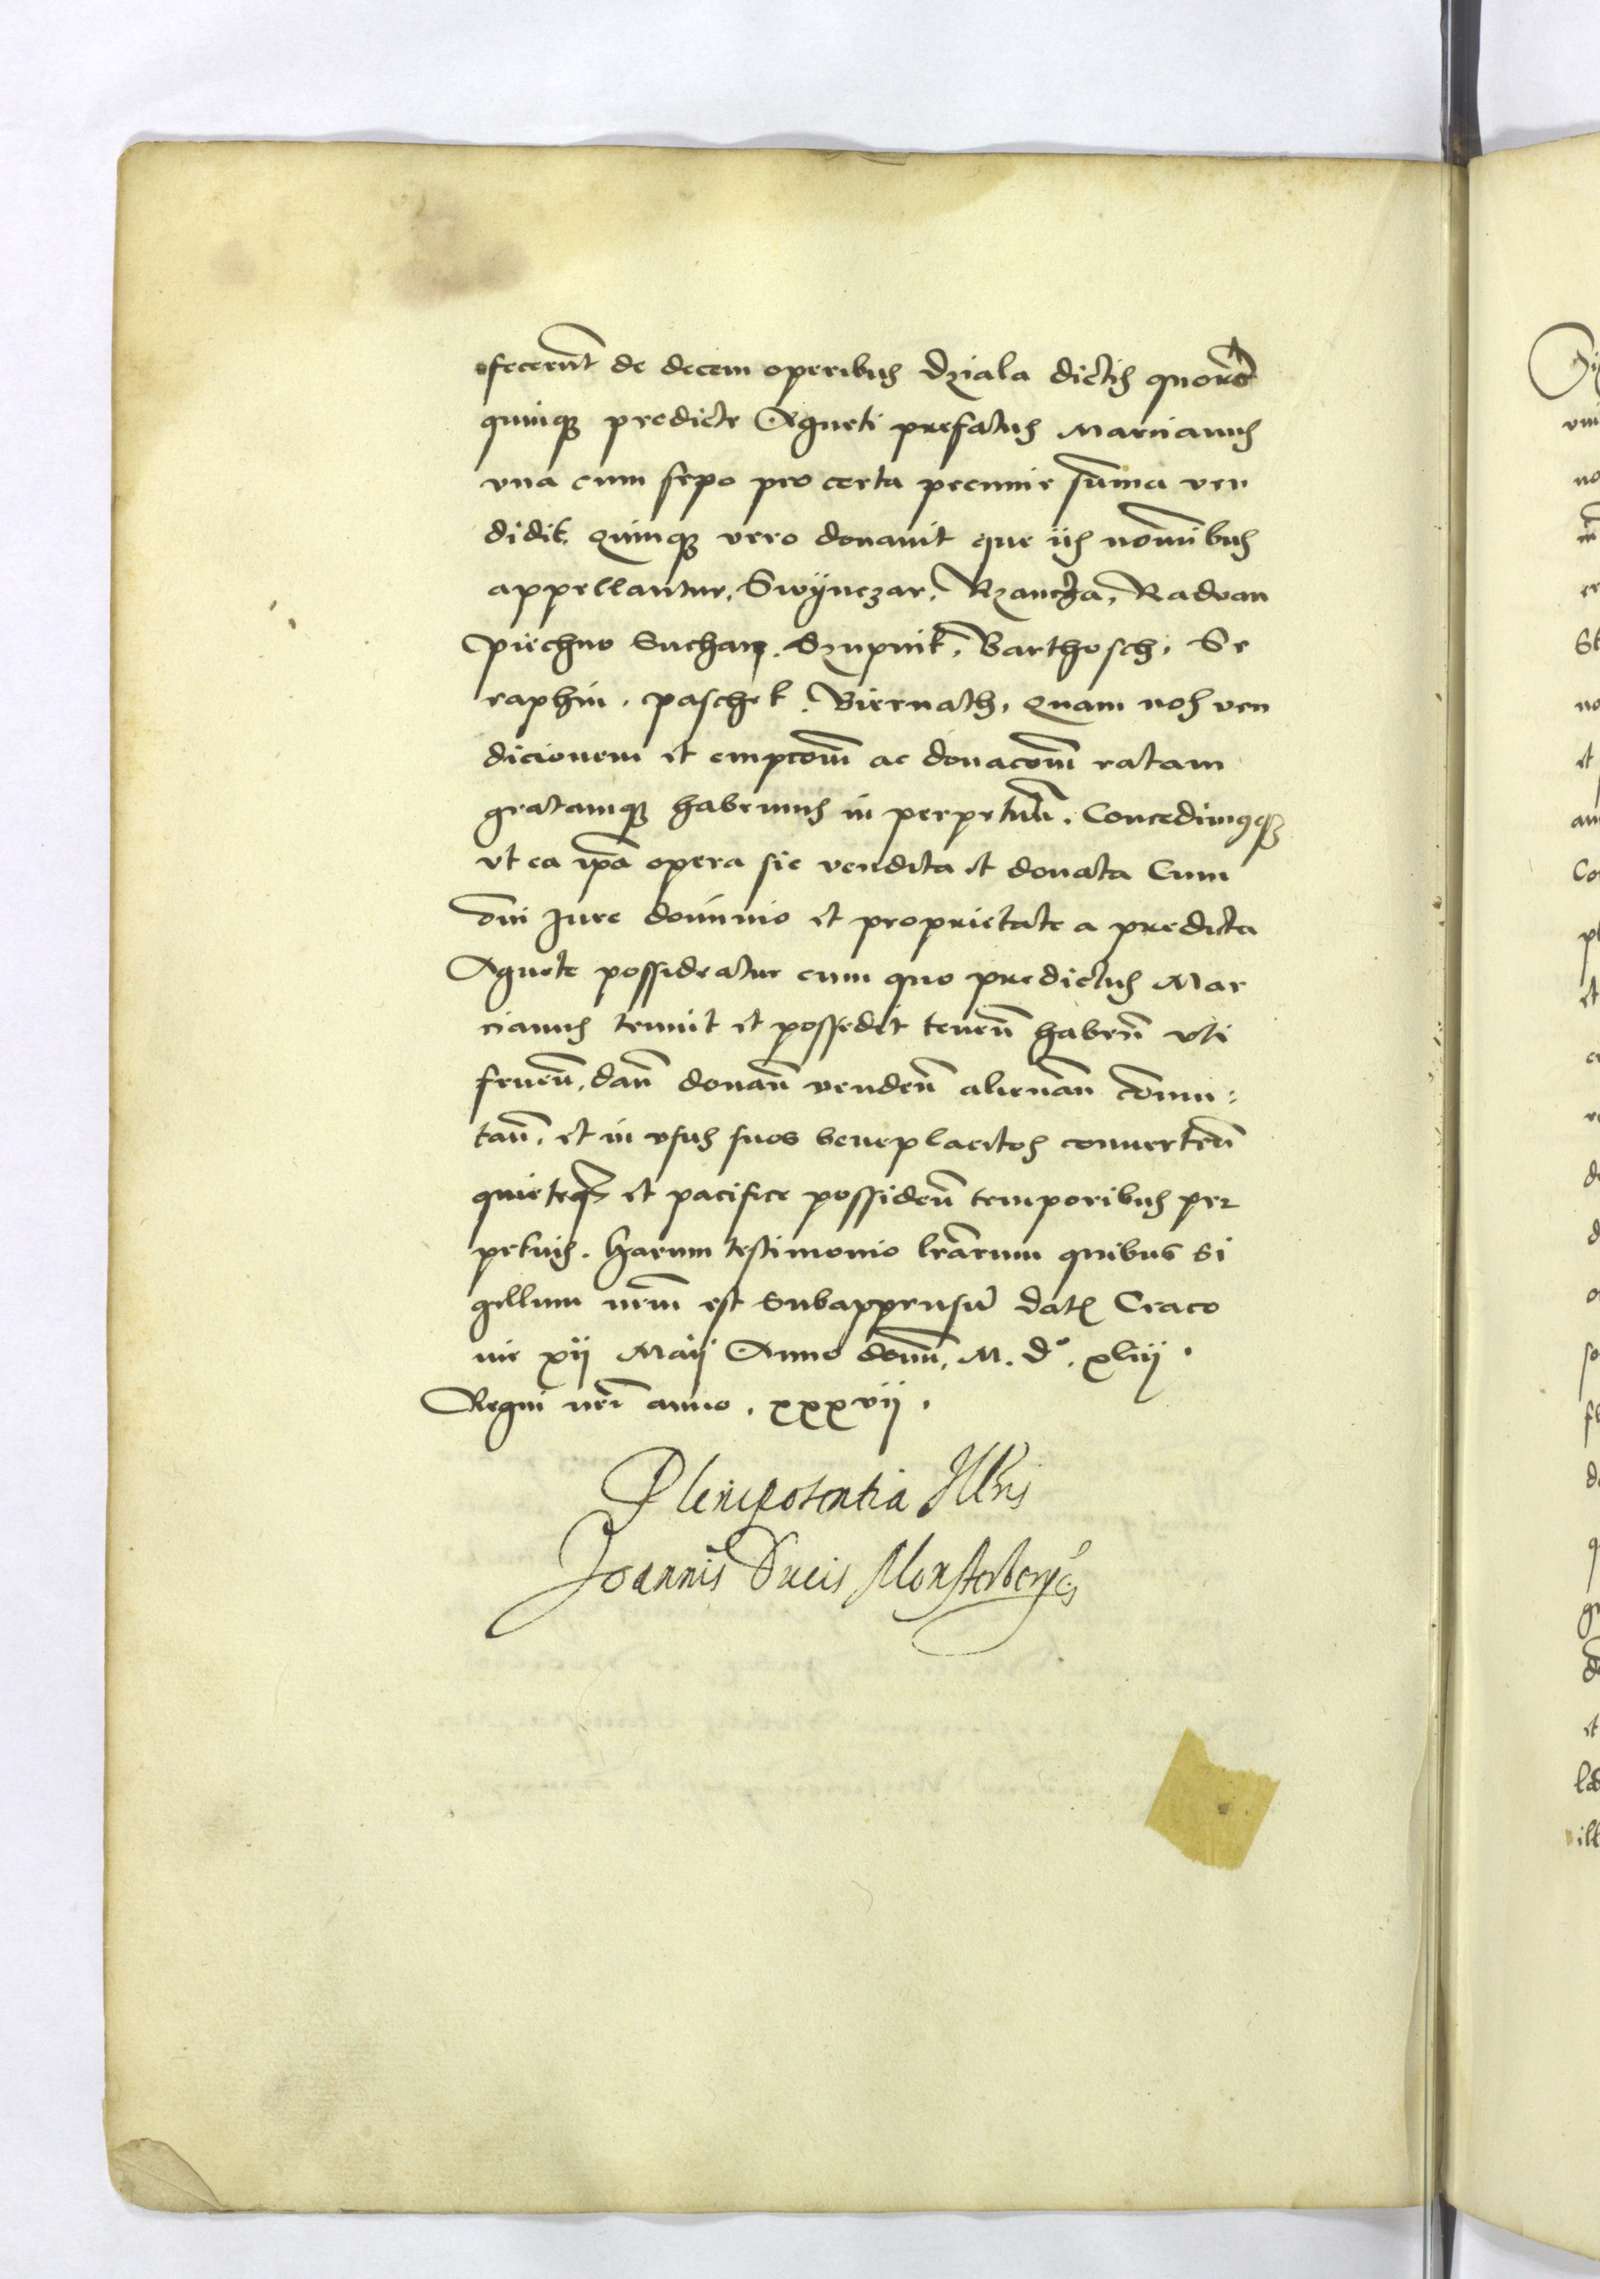 fecerūt de decem operibus Dziala dictis quorū
quinq predicte Agneti prefatus Marcianus
vna cum sepo pro certa pecunie sūma ven
didit. Quinq vero donauit que iis nomībus
appellantur, Swÿnczar, Rzancza, Radvan
Piechno Suchan, Szupnik, Barthosch, Se
raphin, paschek, Biernath, Quam nos ven
dicionem et empcoēm ac donacoēm ratam
gratamq habemus in perpetuū. Concedimusq
vt ea ipā opera sic vendita et donata Cum
omī Jure dominio et proprietate a predicta
Agnete possideatur cum quo predictus Mar
cianus tenuit et possedit tenēn habēn vti
fruēn, dān donān vendēn alienān cōmu:
tān. et in vsus suos beneplacitos conuertēn
quieteq et pacifice possidēn temporibus per
petuis. Harum testimonio lrārum quibus Si
gillum nrm̄ est Subappensū Dat Craco
nie xij Maij Anno domī. M. d°. xliij.
Regni nrī anno. xxxvij.
Plenipotentia Illris
Joannis Ducis Monsterbergs